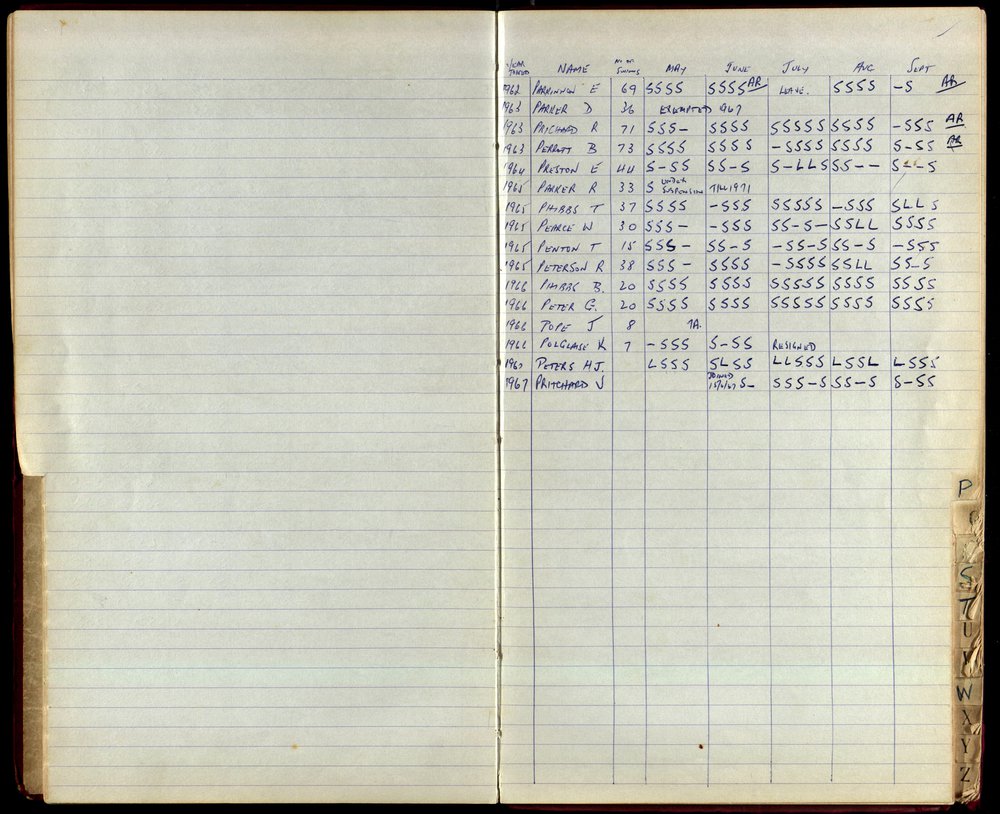 YEAR JOINED NAME No OF SWIMS MAY JUNE JULY AUG SEPT
1962 PARKINSON E 69 SSSS SSSS AR LEAVE. SSSS -S AR
1963 PARKER D 36 EXEMPTED 1967
1963 PRICHARD R 71 SSS- SSSS SSSSS SSSS -SSS AR
1963 PERROTT B 73 SSSS SSSS -SSSS SSSS S-SS AR
1964 PRESTON E 44 S-SS SS-S S-LLS SS-- S--S
1965 PARKER R 33 S UNDER SUSPENSION TILL 1971
1965 PHIBBS T 37 SSSS -SSS SSSSS -SSS SLLS
1965 PEARCE W 30 SSS- -SSS SS-S- SSLL SSSS
1965 PENTON T 15 SSS- SS-S -SS-S SS-S -SSS
1965 PETERSON R 38 SSS- SSSS -SSSS SSLL SS-S
1966 PHIBBS B. 20 SSSS SSSS SSSSS SSSS SSSS
1966 PETER G. 20 SSSS SSSS SSSSS SSSS SSSS
1966 POPE J 8 7A.
1966 POLGLASE K 7 -SSS S-SS RESIGNED
1967 PETERS H.J. LSSS SLSS LLSSS LSSL LSSS
1967 PRITCHARD J JOINED 15/6/67 S- SSS-S SS-S S-SS
P
S
T
U
W
X
Y
Z